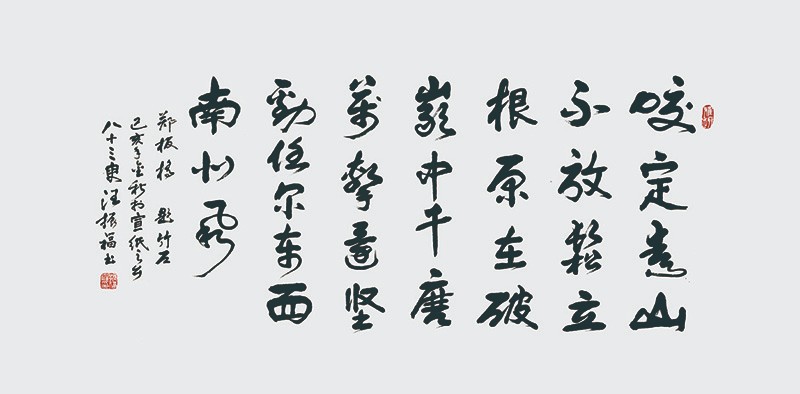 咬定青山
不放鬆立
根原在破
巖中千磨
萬擊還坚
勁任尔东西
南北风
郑板桥 题竹石
己亥年金秋於宣纸之乡
八十三叟汪振福书